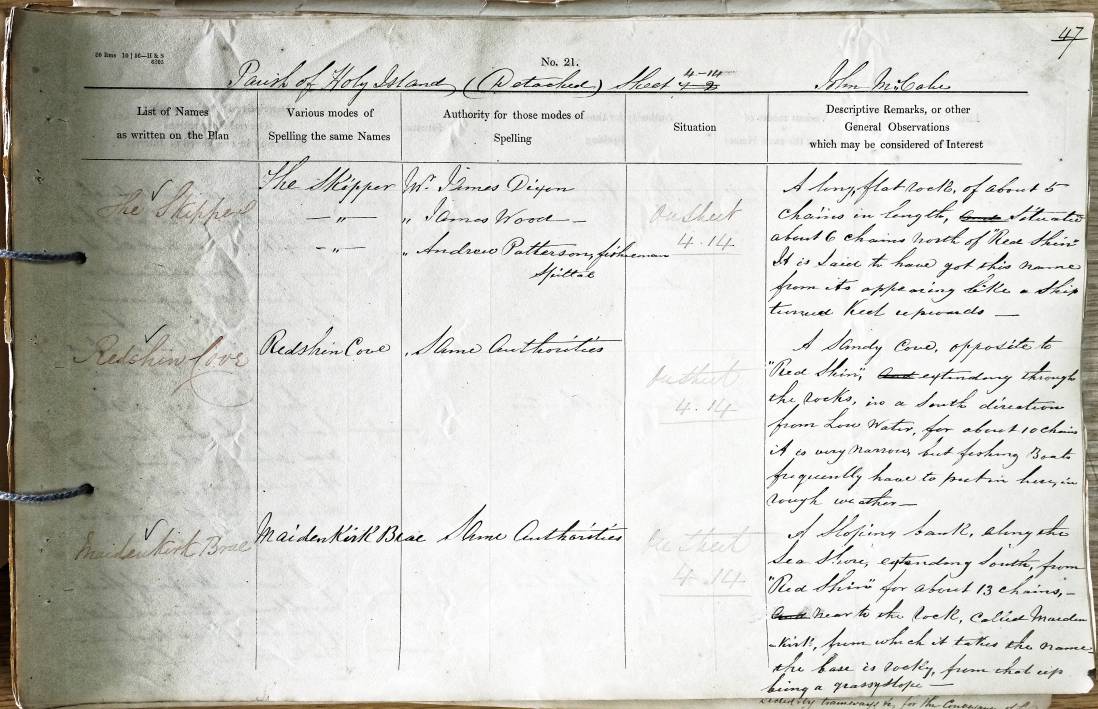 47
No. 21.
Parish of Holy Island (Detached) Sheet 4-14 John McCabe
List of Names
as written on the Plan
Various modes of
Spelling the same Names
Authority for those modes of
Spelling
Situation
Descriptive Remarks, or other
General Observations
which may be considered of Interest
The Skipper
The Skipper
— " —
— " —
Mr. James Dixon
" James Wood —
" Andrew Patterson, fisherman
Spittal
On Sheet
4.14
A long, flat rock, of about 5
chains in length, and Situated
about 6 chains north of "Red Shin"
It is said to have got this name
from its appearing like a Ship
turned Keel upwards —
Redshin Cove
Redshin Cove
Same Authorities
On Sheet
4.14
A Sandy Cove, opposite to
"Red Shin", and extending through
the rocks, in a South direction
from Low Water, for about 10 chains
it is very narrow, but fishing Boats
frequently have to put in here, in
rough weather —
Maidenkirk Brae
MaidenKirk Brae
Same Authorities
On Sheet
4.14
A Sloping bank, along the
Sea Shore, extending South, from
"Red Shin" for about 13 chains, —
and near to the rock, called Maiden
-Kirk, from which it takes the name
the base is rocky, from that up
being a grassy slope —